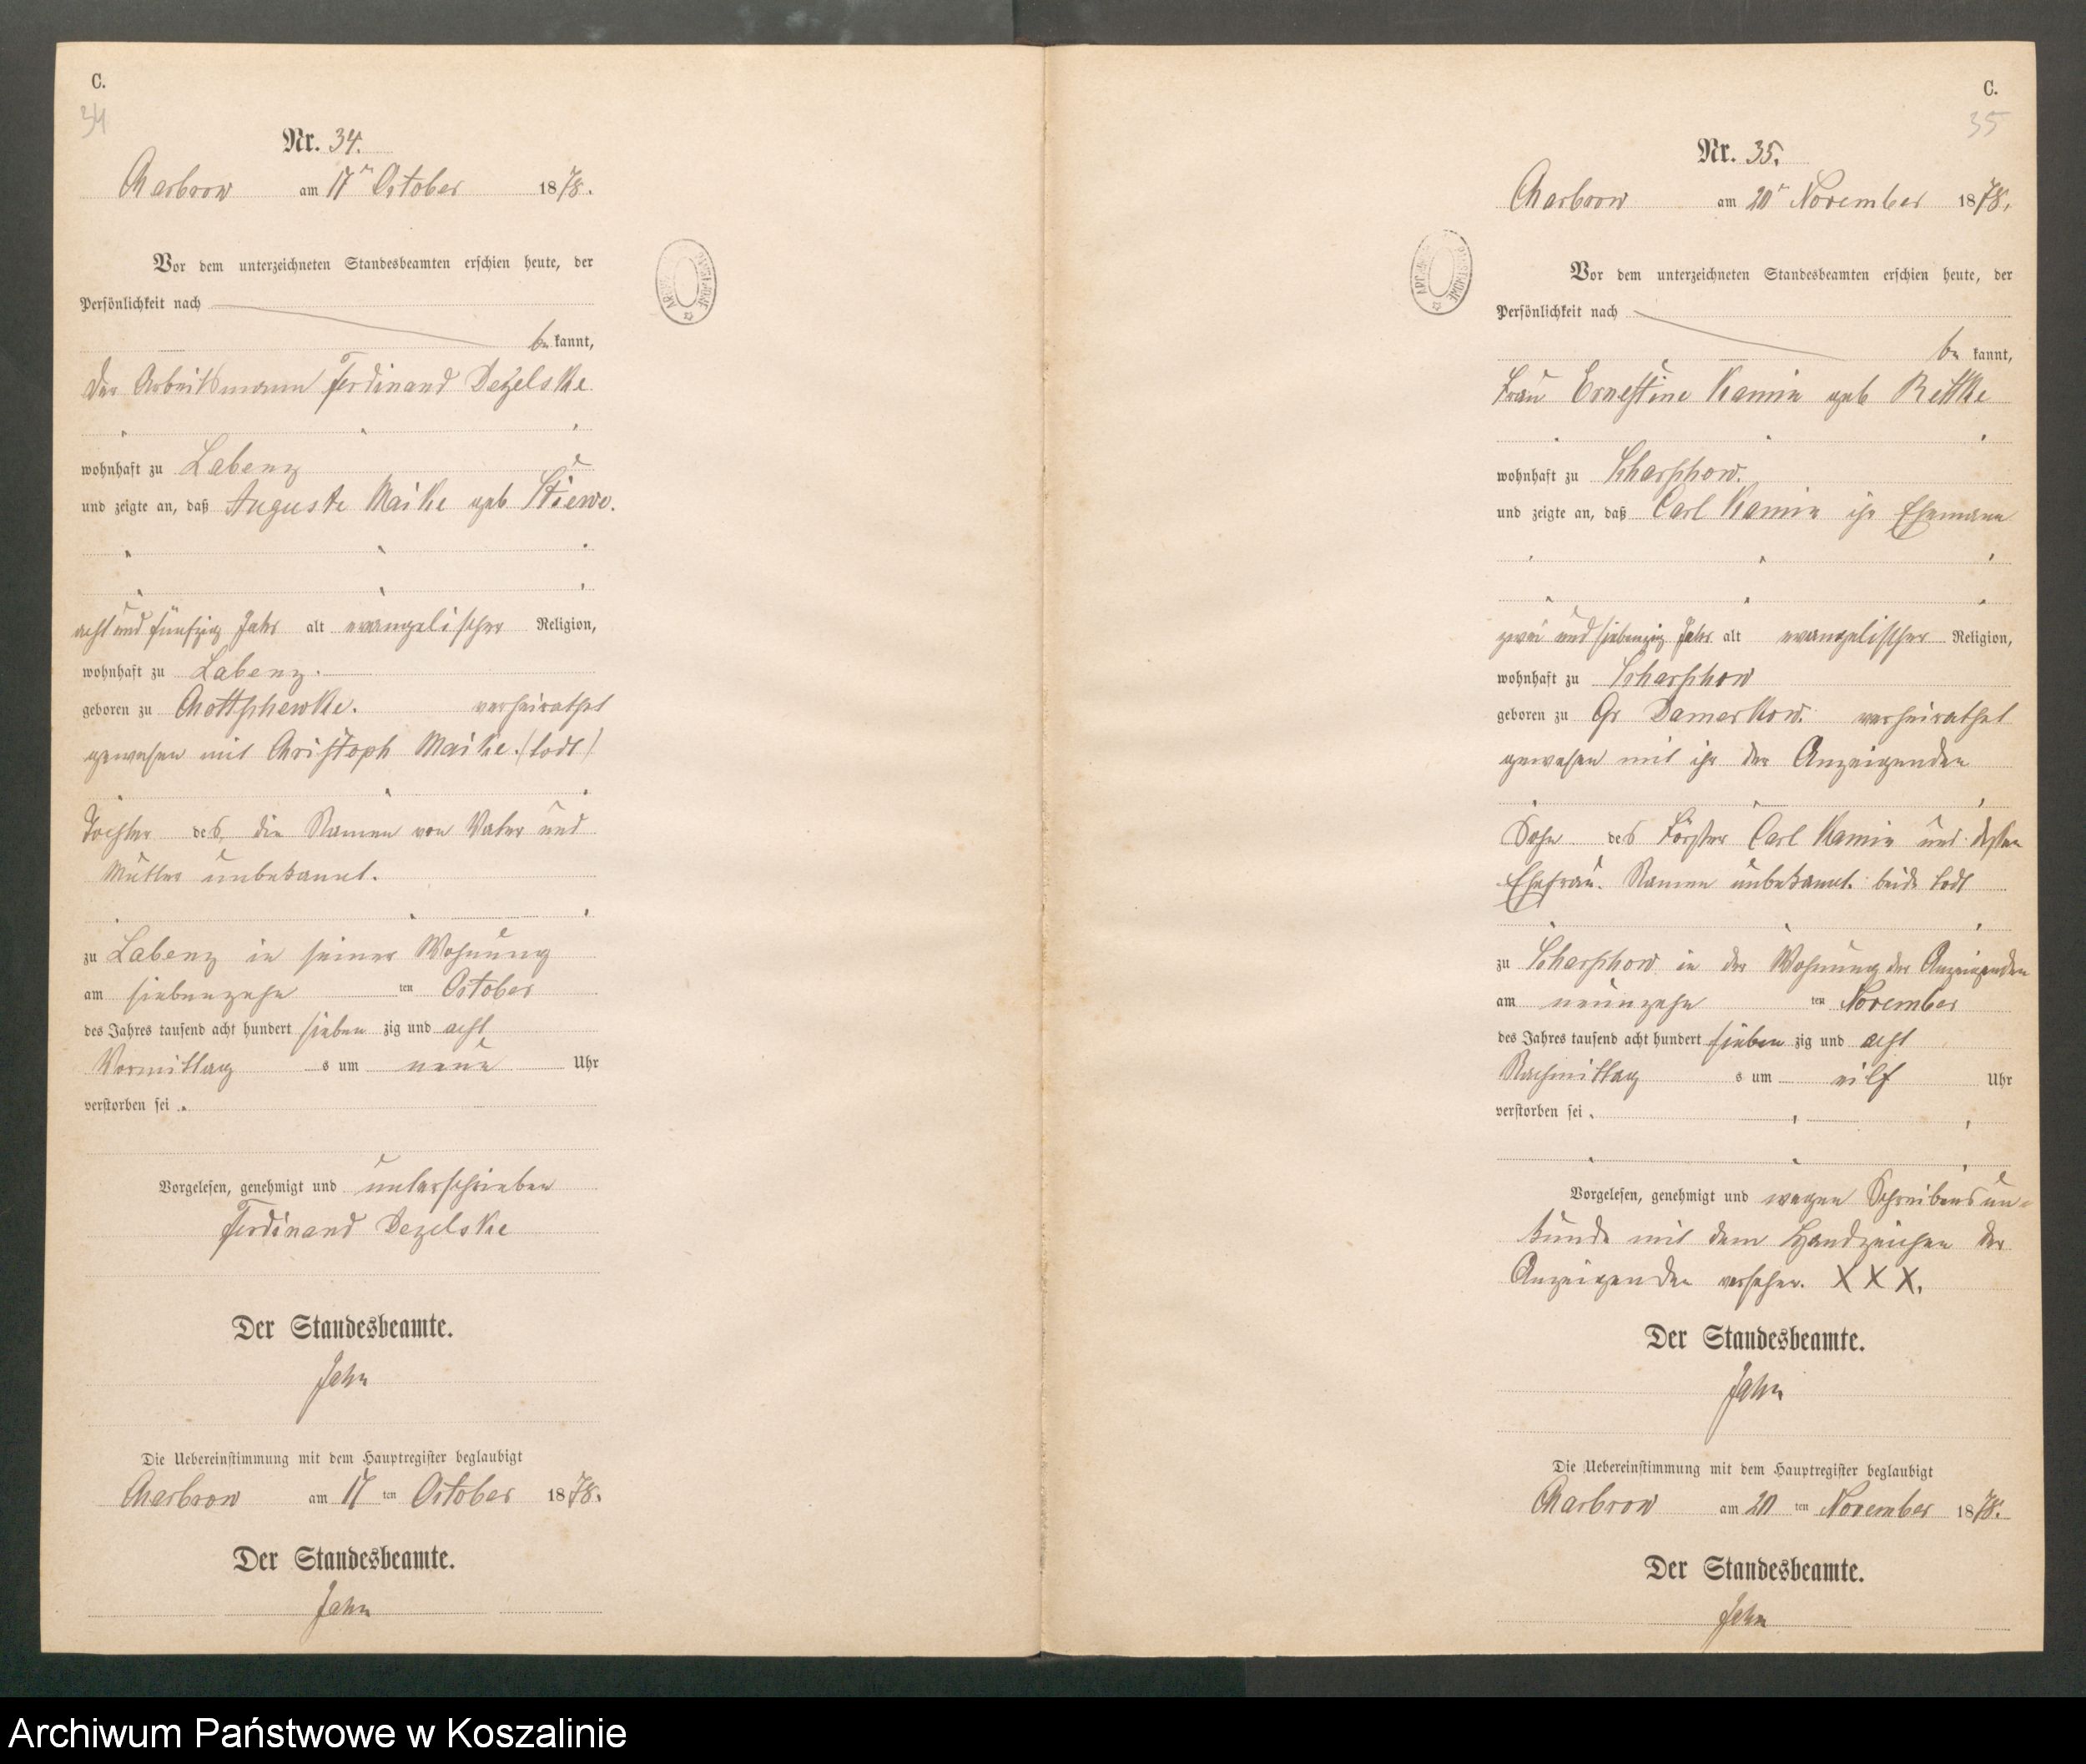 C.
34
Nr. 34.
Charbrow am 17ten October 1878.
Vor dem unterzeichneten Standesbeamten erschien heute, der
Persönlichkeit nach
be kannt,
der Arbeitsmann Ferdinand Dezelske
wohnhaft zu Labenz
und zeigte an, daß Auguste Maike geb Stiewe.
acht und fünfzig Jahr alt evangelischer Religion,
wohnhaft zu Labenz.
geboren zu Chottschewke. verheirathet
gewesen mit Christoph Maike. (todt)
Tochter des, die Namen von Vater und
Mutter unbekannt.
zu Labenz in seiner Wohnung
am siebenzehn ten October
des Jahres tausend acht hundert sieben zig und acht
Vormittag s um neun Uhr
verstorben sei.
Vorgelesen, genehmigt und unterschrieben
Ferdinand Dezelske
Der Standesbeamte.
Jahn
Die Uebereinstimmung mit dem Hauptregister beglaubigt
Charbrow am 17 ten October 1878.
Der Standesbeamte.
Jahn
C.
35
Nr. 35.
Charbrow am 20t November 1878.
Vor dem unterzeichneten Standesbeamten erschien heute, der
Persönlichkeit nach
be kannt,
Frau Ernestine Kamin geb Rettke
wohnhaft zu Scharschow.
und zeigte an, daß Carl Kamin ihr Ehemann
zwei und siebenzig Jahr alt evangelischer Religion,
wohnhaft zu Scharschow
geboren zu Gr Damerkow. verheirathet
gewesen mit ihr der Anzeigenden
Sohn des Förster Carl Kamin und dessen
Ehefrau. Namen unbekannt. beide todt
zu Scharschow in der Wohnung der Anzeigenden
am neunzehn ten November
des Jahres tausend acht hundert sieben zig und acht
Nachmittag s um eilf Uhr
verstorben sei.
Vorgelesen, genehmigt und wegen Schreibensun-
kunde mit dem Handzeichen der
Anzeigenden versehen. X X X.
Der Standesbeamte.
Jahn
Die Uebereinstimmung mit dem Hauptregister beglaubigt
Charbrow am 20 ten November 1878.
Der Standesbeamte.
Jahn
Archiwum Państwowe w Koszalinie